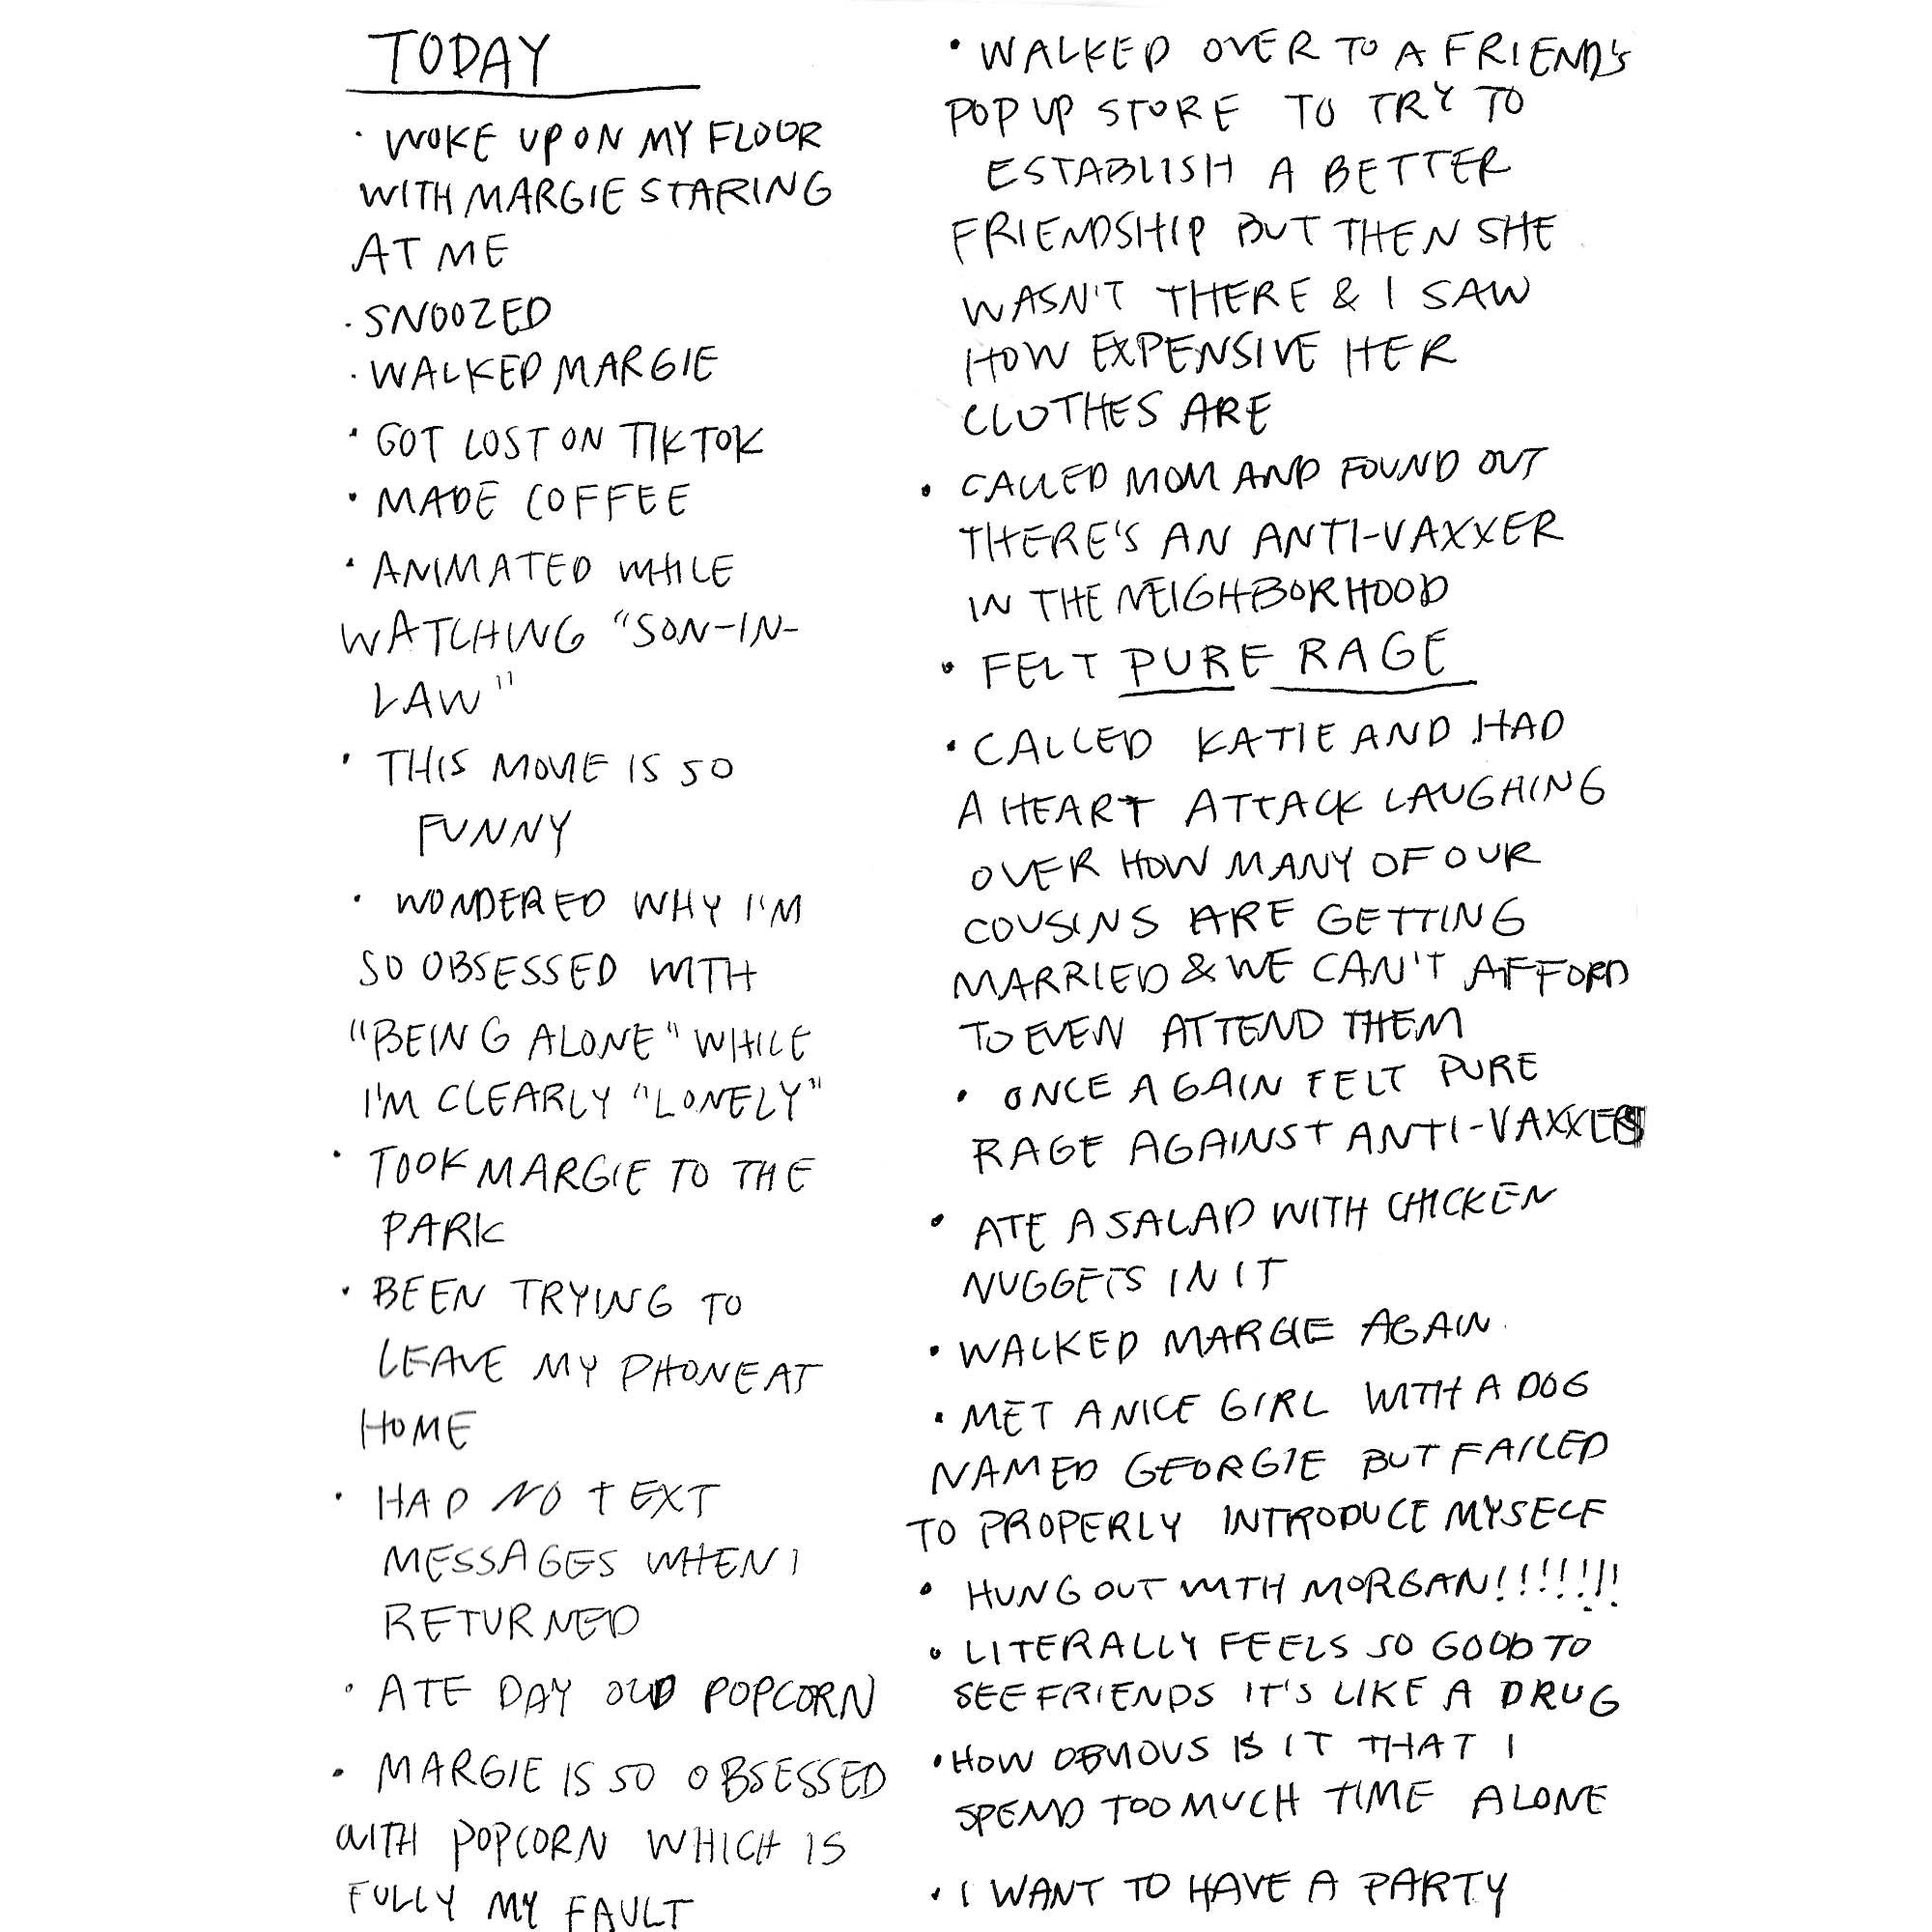 TODAY
· WOKE UP ON MY FLOOR
WITH MARGIE STARING
AT ME
· SNOOZED
· WALKED MARGIE
· GOT LOST ON TIKTOK
· MADE COFFEE
· ANIMATED WHILE
WATCHING "SON-IN-
LAW"
· THIS MOVIE IS SO
FUNNY
· WONDERED WHY I'M
SO OBSESSED WITH
"BEING ALONE" WHILE
I'M CLEARLY "LONELY"
· TOOK MARGIE TO THE
PARK
· BEEN TRYING TO
LEAVE MY PHONE AT
HOME
· HAD NO TEXT
MESSAGES WHEN I
RETURNED
· ATE DAY OLD POPCORN
· MARGIE IS SO OBSESSED
WITH POPCORN WHICH IS
FULLY MY FAULT
· WALKED OVER TO A FRIEND'S
POP UP STORE TO TRY TO
ESTABLISH A BETTER
FRIENDSHIP BUT THEN SHE
WASN'T THERE & I SAW
HOW EXPENSIVE HER
CLOTHES ARE
· CALLED MOM AND FOUND OUT
THERE'S AN ANTI-VAXXER
IN THE NEIGHBORHOOD
· FELT PURE RAGE
· CALLED KATIE AND HAD
A HEART ATTACK LAUGHING
OVER HOW MANY OF OUR
COUSINS ARE GETTING
MARRIED & WE CAN'T AFFORD
TO EVEN ATTEND THEM
· ONCE AGAIN FELT PURE
RAGE AGAINST ANTI-VAXXERS
· ATE A SALAD WITH CHICKEN
NUGGETS IN IT
· WALKED MARGIE AGAIN.
· MET A NICE GIRL WITH A DOG
NAMED GEORGIE BUT FAILED
TO PROPERLY INTRODUCE MYSELF
· HUNG OUT WITH MORGAN!!!!!!!
· LITERALLY FEELS SO GOOD TO
SEE FRIENDS IT'S LIKE A DRUG
· HOW OBVIOUS IS IT THAT I
SPEND TOO MUCH TIME ALONE
· I WANT TO HAVE A PARTY